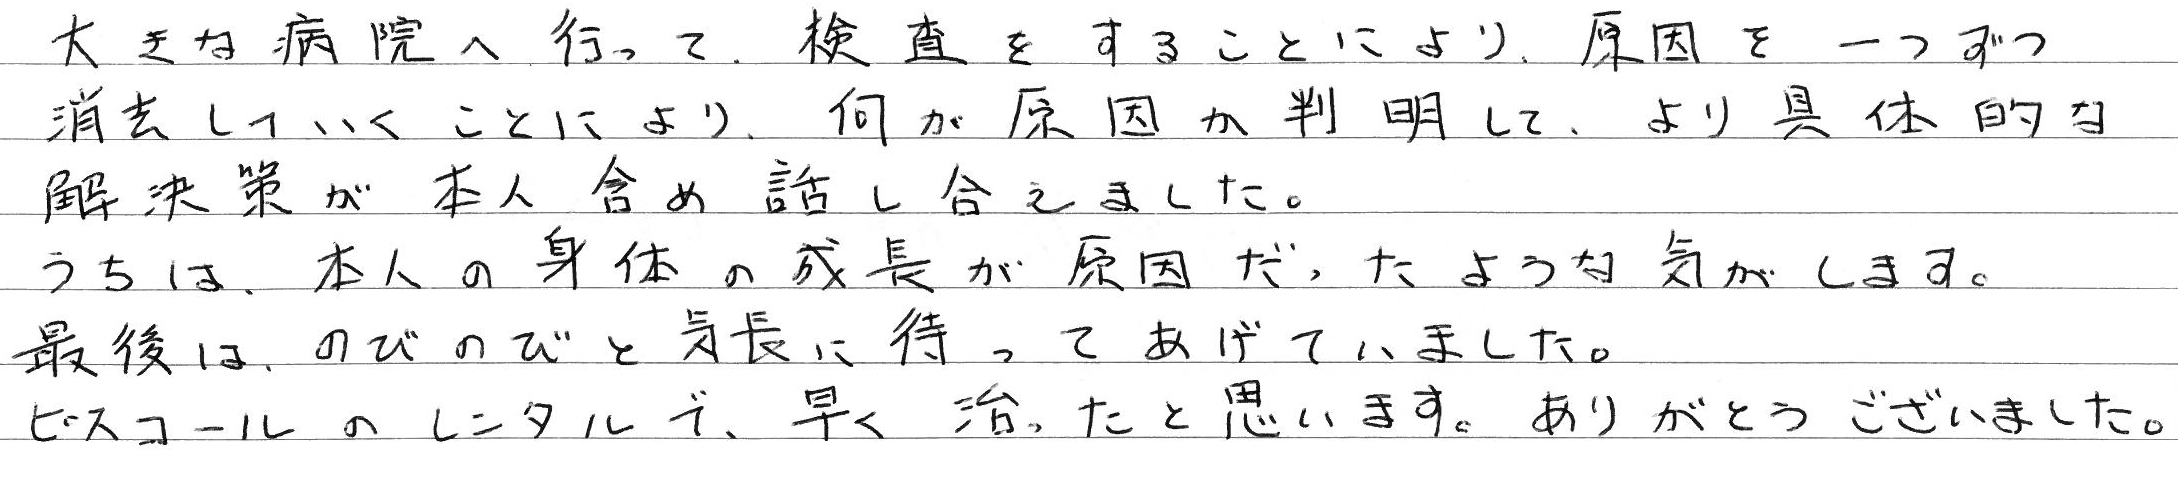 大きな病院へ行って、検査をすることにより、原因を一つずつ
消去していくことにより、何が原因か判明して、より具体的な
解決策が本人含め話し合えました。
うちは、本人の身体の成長が原因だったような気がします。
最後は、のびのびと気長に待ってあげていました。
ピスコールのレンタルで、早く治ったと思います。ありがとうございました。